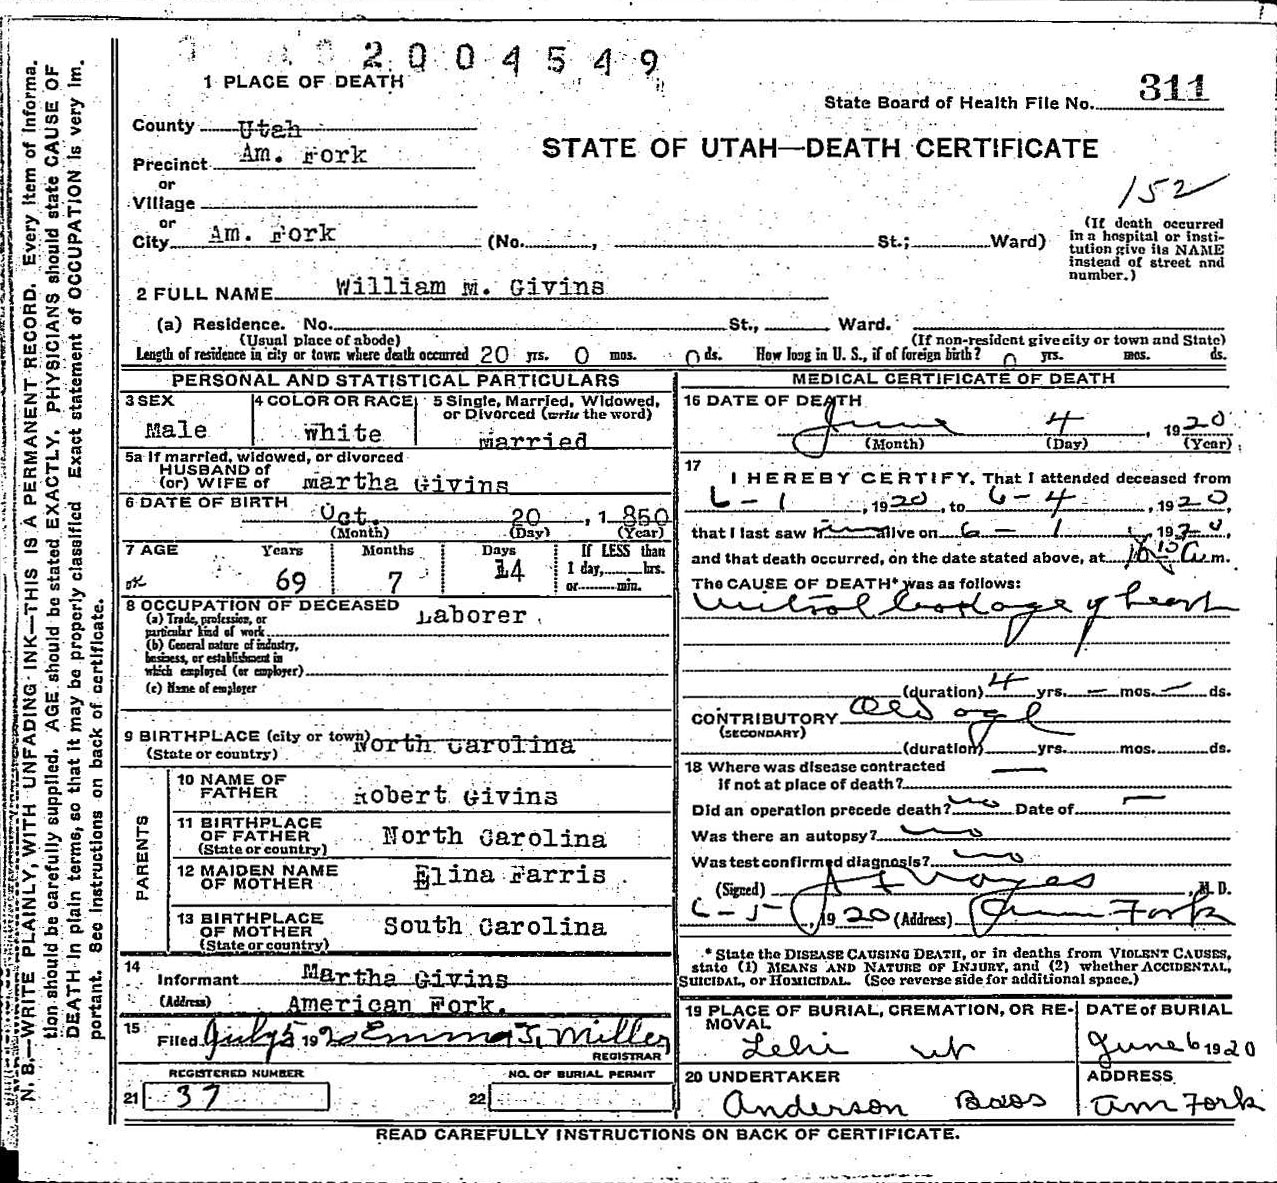 2004549
1 PLACE OF DEATH
State Board of Health File No. 311
County Utah
STATE OF UTAH—DEATH CERTIFICATE
Precinct Am. Fork
or
Village
152
or
City Am. Fork (No. , St.; Ward)
(If death occurred
in a hospital or insti-
tution give its NAME
instead of street and
number.)
2 FULL NAME William M. Givins
(a) Residence. No. St., Ward.
(Usual place of abode) (If non-resident give city or town and State)
Length of residence in city or town where death occurred 20 yrs. 0 mos. 0 ds. How long in U. S., if of foreign birth? 0 yrs. mos. ds.
PERSONAL AND STATISTICAL PARTICULARS
3 SEX
Male
4 COLOR OR RACE
White
5 Single, Married, Widowed,
or Divorced (write the word)
Married
5a If married, widowed, or divorced
HUSBAND of
(or) WIFE of Martha Givins
6 DATE OF BIRTH
Oct. 20, 1850
(Month) (Day) (Year)
7 AGE Years Months Days If LESS than
1 day, hrs.
or min.
OK 69 7 14
8 OCCUPATION OF DECEASED
(a) Trade, profession, or
particular kind of work Laborer
(b) General nature of industry,
business, or establishment in
which employed (or employer)
(c) Name of employer
9 BIRTHPLACE (city or town) North Carolina
(State or country)
PARENTS
10 NAME OF
FATHER Robert Givins
11 BIRTHPLACE
OF FATHER North Carolina
(State or country)
12 MAIDEN NAME
OF MOTHER Elina Farris
13 BIRTHPLACE
OF MOTHER South Carolina
(State or country)
14
Informant Martha Givins
(Address) American Fork.
15
Filed July 5 1920 Emma J. Miller
REGISTRAR
REGISTERED NUMBER NO. OF BURIAL PERMIT
21 37 22
MEDICAL CERTIFICATE OF DEATH
16 DATE OF DEATH
June 4, 1920
(Month) (Day) (Year)
17
I HEREBY CERTIFY, That I attended deceased from
6-1, 1920, to 6-4, 1920,
that I last saw him alive on 6-1, 1920,
and that death occurred, on the date stated above, at A m.
The CAUSE OF DEATH* was as follows:
Mitral leakage of heart
(duration) 4 yrs. — mos. — ds.
CONTRIBUTORY Old age
(SECONDARY)
(duration) yrs. mos. ds.
18 Where was disease contracted
if not at place of death? —
Did an operation precede death? no Date of —
Was there an autopsy? no
Was test confirmed diagnosis? no
(Signed) , M. D.
6-5-, 1920 (Address) Am Fork
* State the DISEASE CAUSING DEATH, or in deaths from VIOLENT CAUSES,
state (1) MEANS AND NATURE OF INJURY, and (2) whether ACCIDENTAL,
SUICIDAL, or HOMICIDAL. (See reverse side for additional space.)
19 PLACE OF BURIAL, CREMATION, OR RE-
MOVAL
Lehi Ut
DATE of BURIAL
June 6 1920
20 UNDERTAKER
Anderson Bros
ADDRESS
Am Fork
READ CAREFULLY INSTRUCTIONS ON BACK OF CERTIFICATE.
N. B.—WRITE PLAINLY, WITH UNFADING INK—THIS IS A PERMANENT RECORD. Every item of informa-
tion should be carefully supplied. AGE should be stated EXACTLY. PHYSICIANS should state CAUSE OF
DEATH in plain terms, so that it may be properly classified. Exact statement of OCCUPATION is very im-
portant. See instructions on back of certificate.